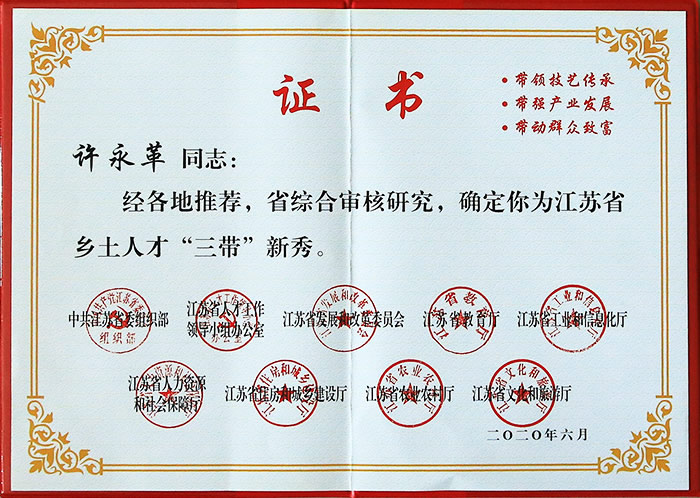 证书
• 带领技艺传承
• 带强产业发展
• 带动群众致富
许永革 同志：
经各地推荐，省综合审核研究，确定你为江苏省
乡土人才“三带”新秀。
中共江苏省委组织部
江苏省人才工作
领导小组办公室
江苏省发展和改革委员会
江苏省教育厅
江苏省工业和信息化厅
江苏省人力资源
和社会保障厅
江苏省住房和城乡建设厅
江苏省农业农村厅
江苏省文化和旅游厅
二〇二〇年六月